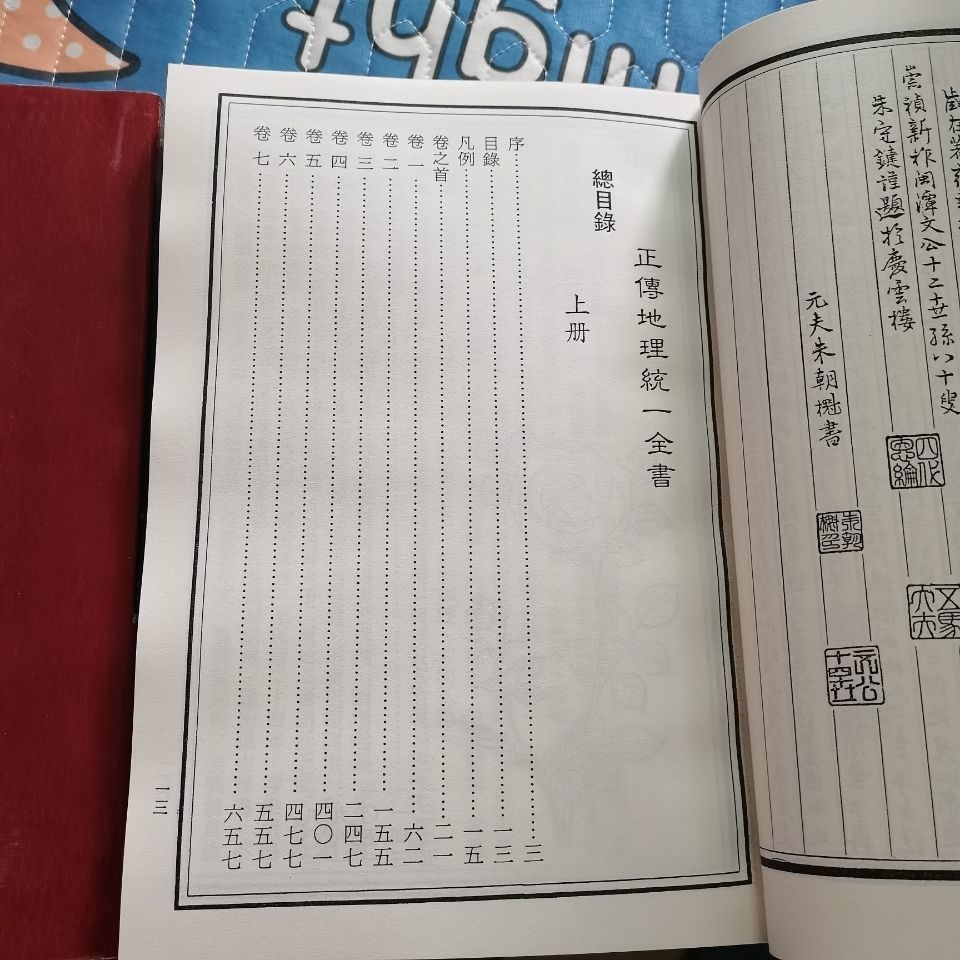 崇禎新祚閩潭文公十二世孫八十叟
朱定鍵謹題於慶雲樓
元夫朱朝書
四代恩綸
正傳地理統一全書
總目錄
上册
序……三
目錄……一三
凡例……一五
卷之首……二一
卷一……六二
卷二……一五五
卷三……二四七
卷四……四〇一
卷五……四七七
卷六……五五七
卷七……六五七
一三